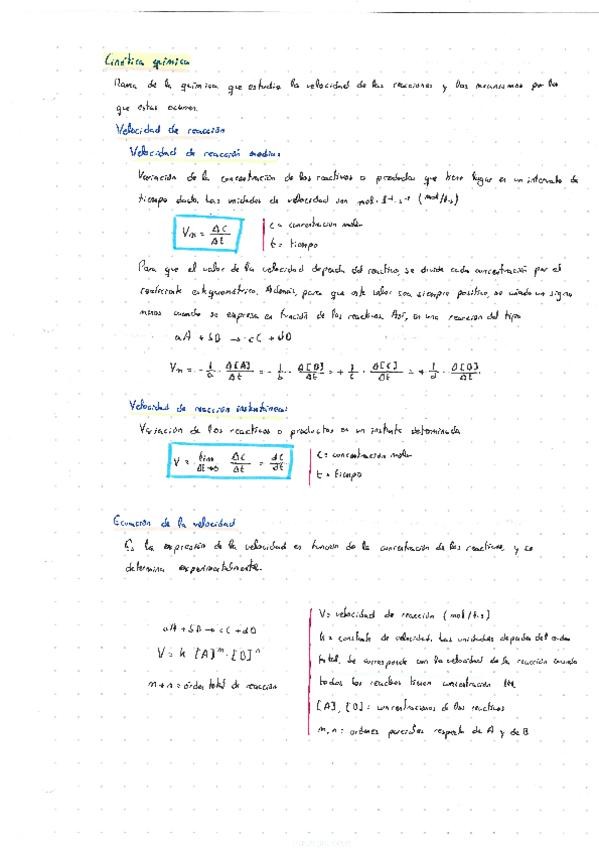 Cinética química
Rama de la química que estudia la velocidad de las reacciones y los mecanismos por los
que estas ocurren.
Velocidad de reacción
Velocidad de reacción media:
Variación de la concentración de los reactivos o productos que tiene lugar en un intervalo de
tiempo dado. Las unidades de velocidad son mol·l⁻¹·s⁻¹ (mol/l·s)
Vm = ΔC/Δt
C = concentración molar
t = tiempo
Para que el valor de la velocidad dependa del reactivo, se divide cada concentración por el
coeficiente estequiométrico. Además, para que este valor sea siempre positivo, se añade un signo
menos cuando se expresa en función de los reactivos. Así, en una reacción del tipo
aA + bB → cC + dD
Vm = - 1/a · Δ[A]/Δt = - 1/b · Δ[B]/Δt = + 1/c · Δ[C]/Δt = + 1/d · Δ[D]/Δt
Velocidad de reacción instantánea:
Variación de los reactivos o productos en un instante determinado
V = lim Δt→0 ΔC/Δt = dC/dt
C = concentración molar
t = tiempo
Ecuación de la velocidad
Es la expresión de la velocidad en función de la concentración de los reactivos, y se
determina experimentalmente.
aA + bB → cC + dD
V = k [A]ᵐ · [B]ⁿ
m + n = orden total de reacción
V = velocidad de reacción (mol/l·s)
k = constante de velocidad. Las unidades dependen del orden
total. Se corresponde con la velocidad de la reacción cuando
todos los reactivos tienen concentración 1M
[A], [B] = concentraciones de los reactivos
m, n = ordenes parciales respecto de A y de B